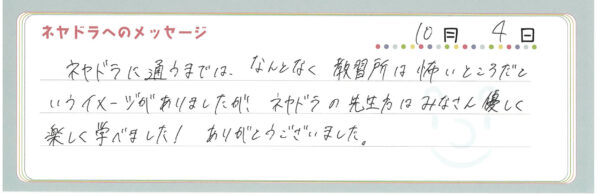 ネヤドラへのメッセージ
10月 4日
ネヤドラに通うまでは、なんとなく教習所は怖いところだと
いうイメージがありましたが、ネヤドラの先生方はみなさん優しく
楽しく学べました! ありがとうございました。